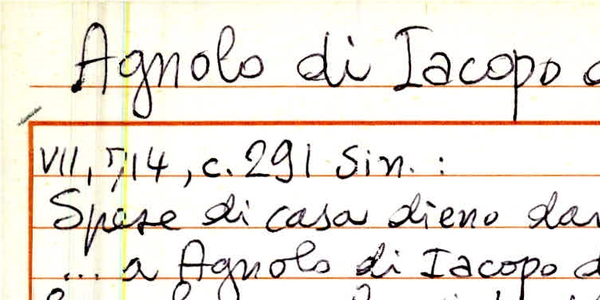 Agnolo di Iacopo d
VII, 714, c. 291 sin. :
Spese di casa dieno dar
... a Agnolo di Iacopo d